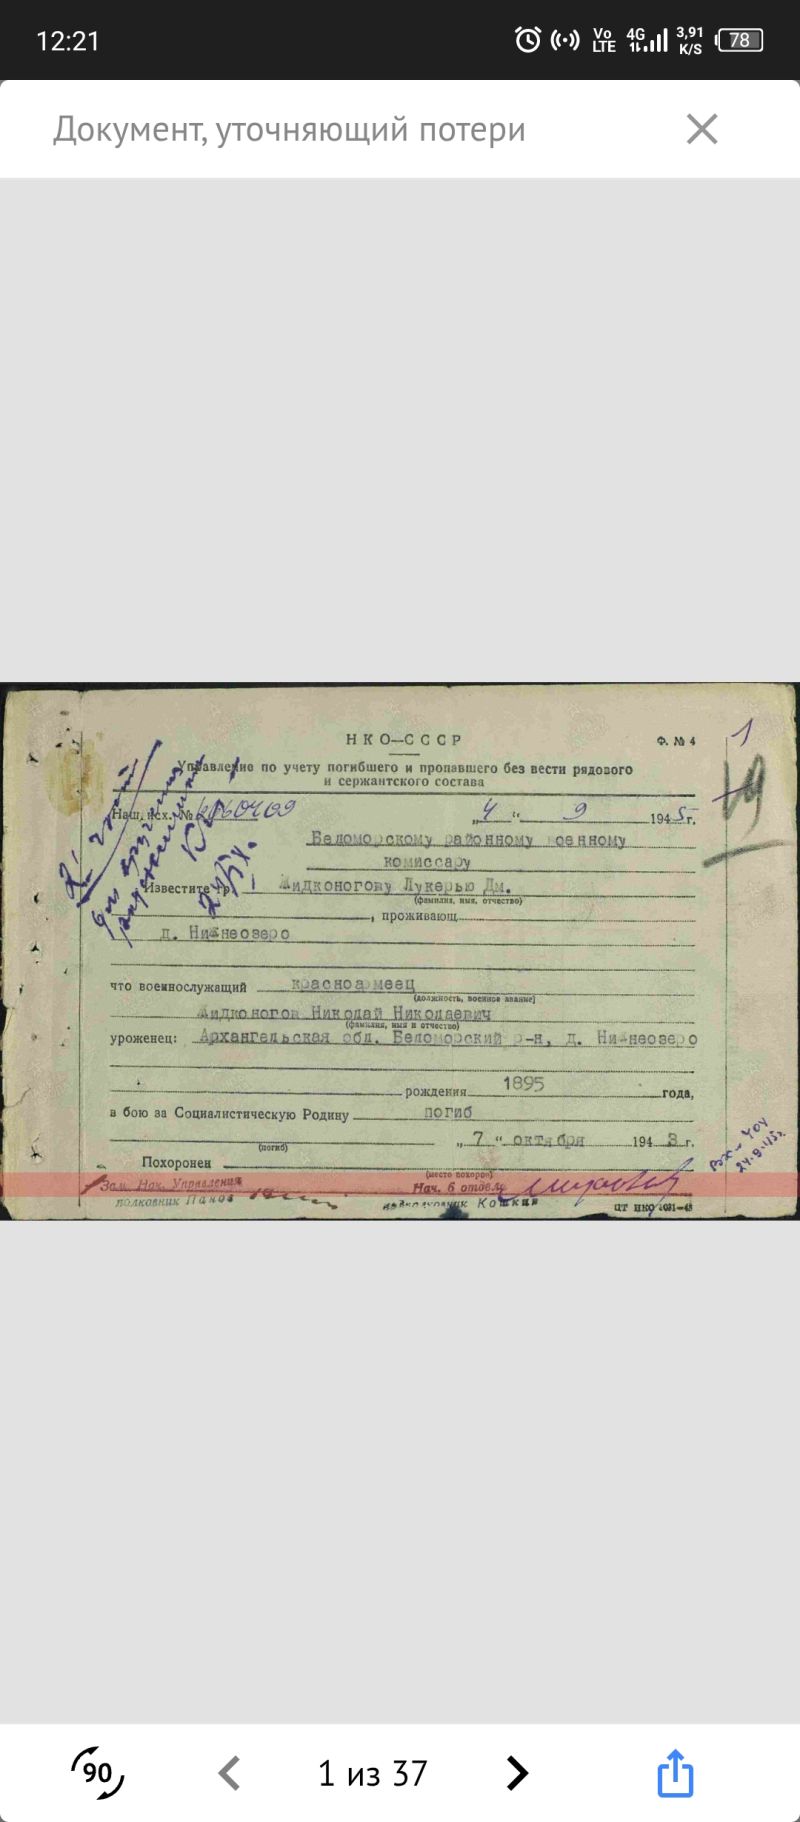 12:21
Vo LTE 4G 3,91 K/S 78
Документ, уточняющий потери
НКО—СССР
Ф. № 4
1
19
Управление по учету погибшего и пропавшего без вести рядового
и сержантского состава
Наш. исх. № 2060409
„4“ 9 1945г.
Беломорскому районному военному
комиссару
Известите гр. Жидконогову Лукерью Дм.
(фамилия, имя, отчество)
, проживающ.
д. Нижнеозеро
что военнослужащий красноармеец
(должность, военное звание)
Жидконогов Николай Николаевич
(фамилия, имя и отчество)
уроженец: Архангельская обл. Беломорский р-н, д. Нижнеозеро
рождения 1895 года,
в бою за Социалистическую Родину погиб
„7“ октября 1943 г.
(погиб)
Похоронен
(место похорон)
Вх-404
24.9.45г.
Зам. Нач. Управления Нач. 6 отдела
полковник Панов подполковник Кошкин
ЦТ НКО
90
1 из 37